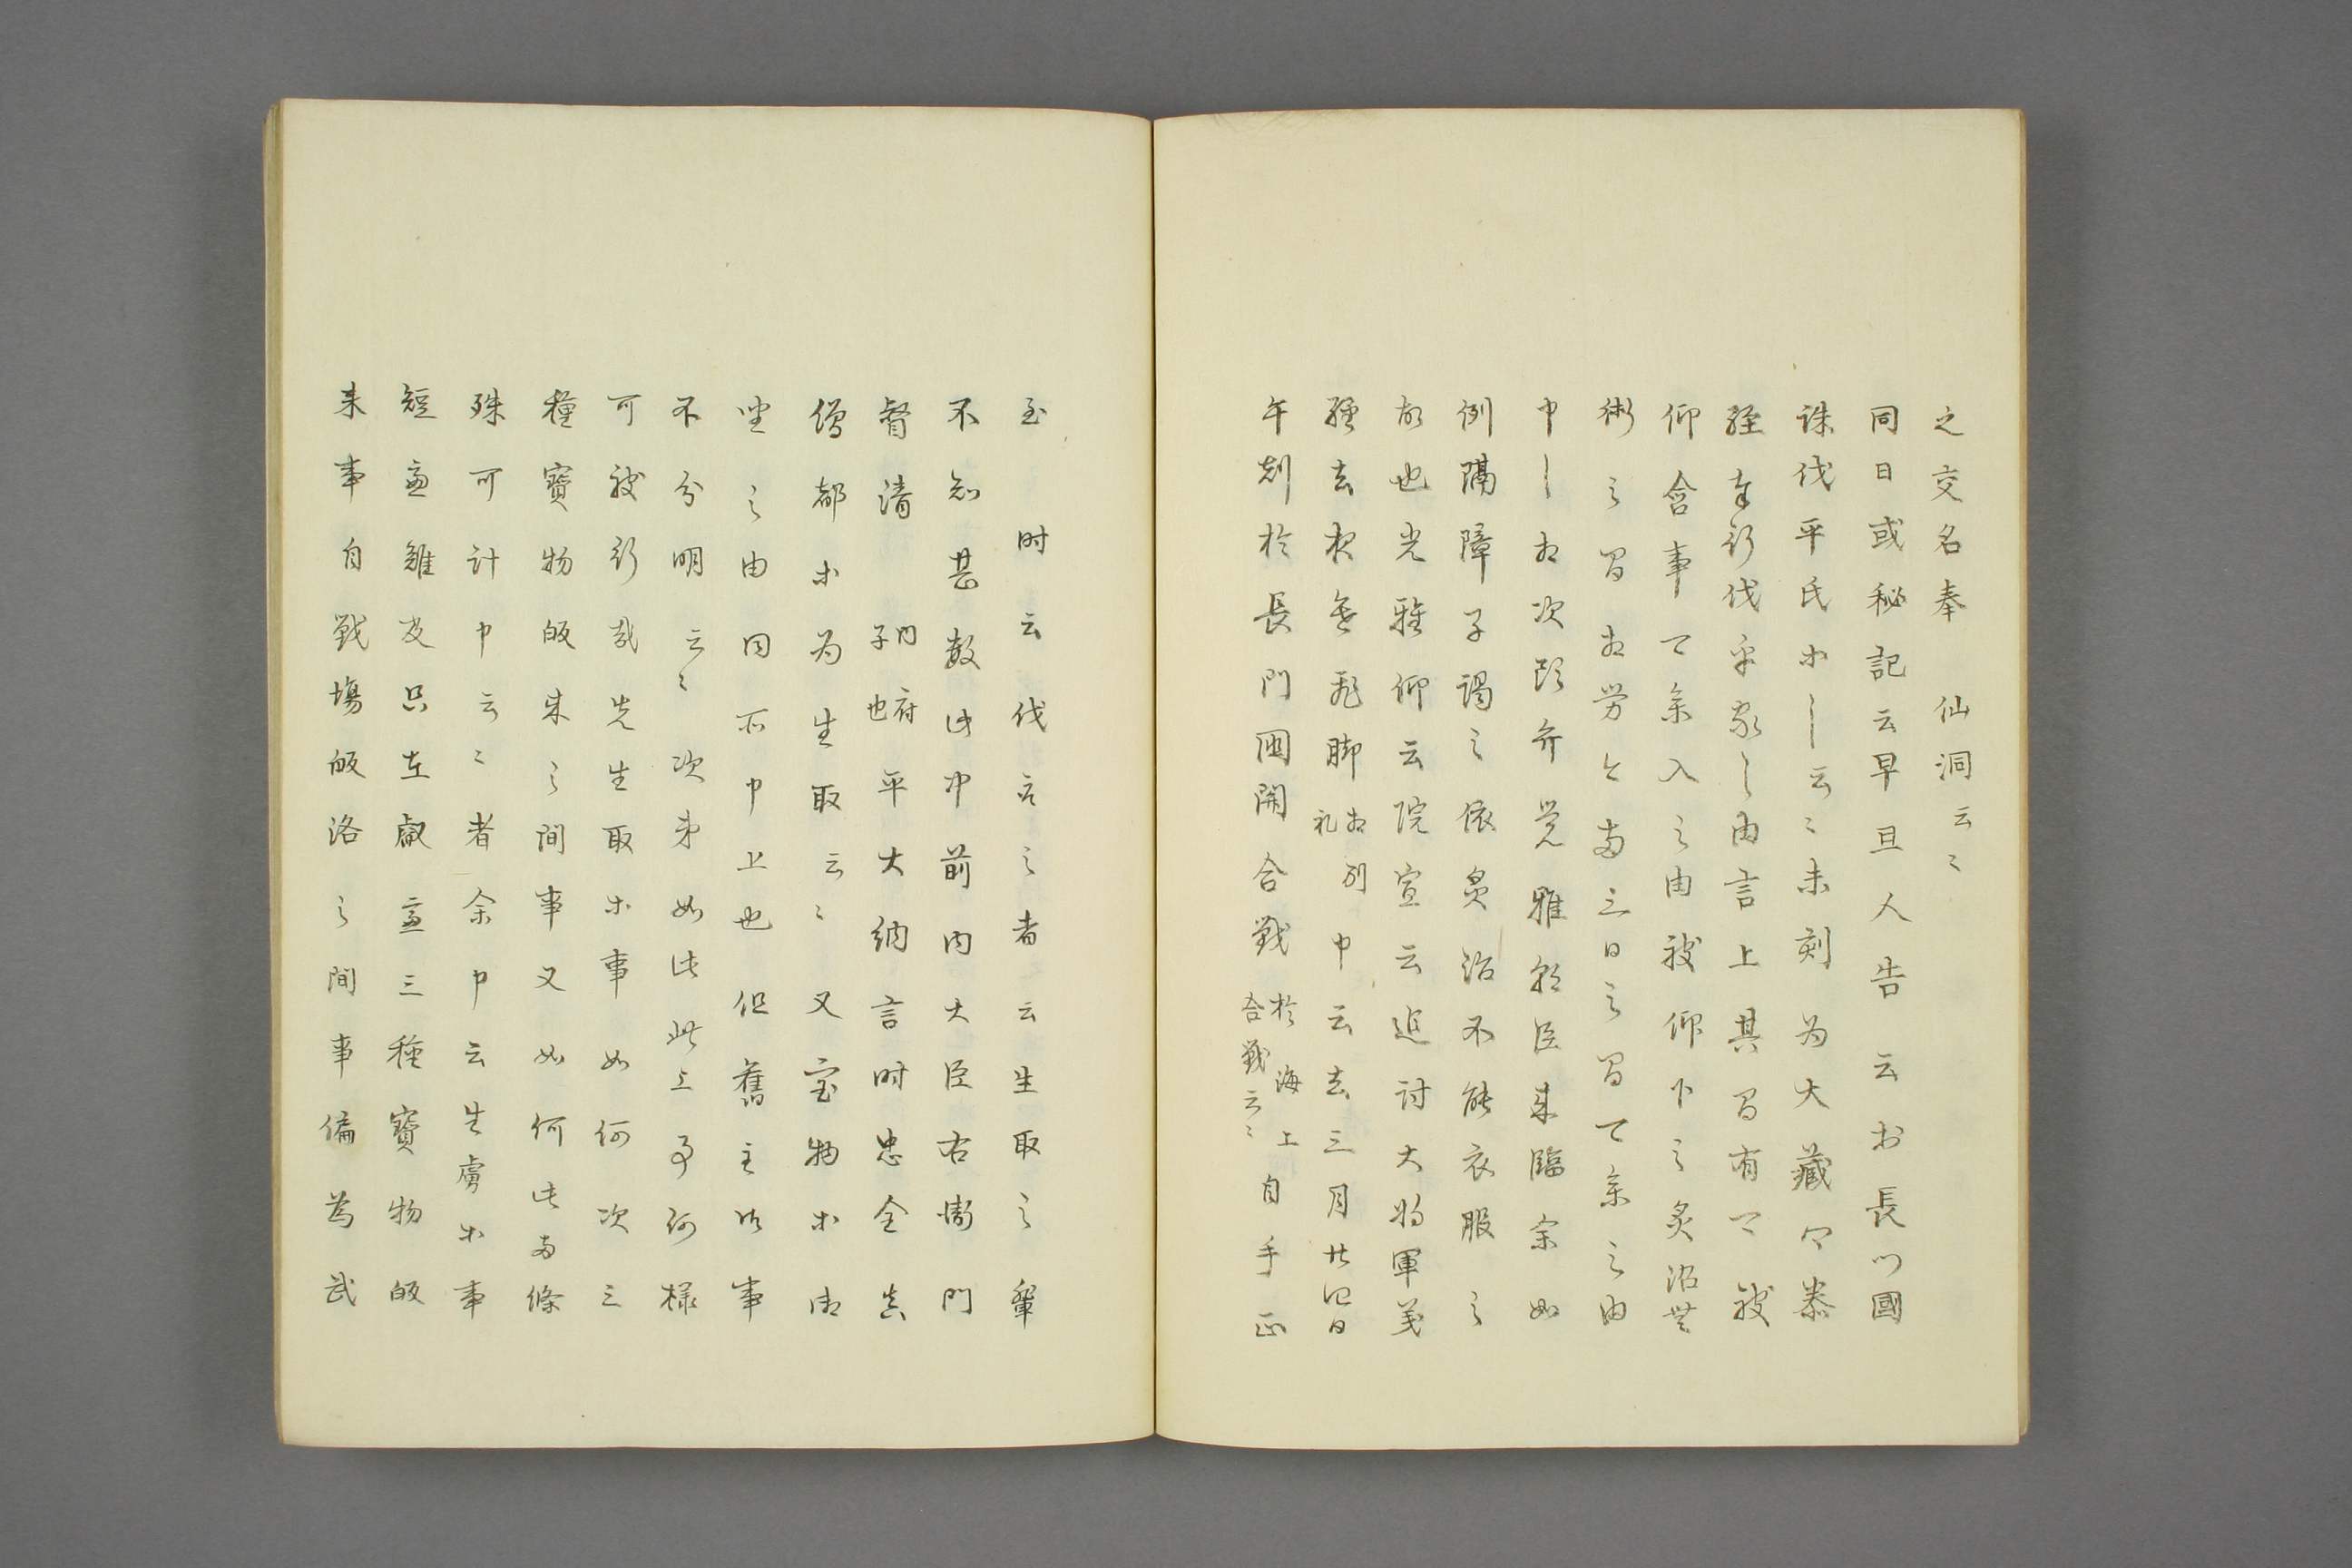 之交名奉　仙洞云々
同日或秘記云早旦人告云於長門國
誅伐平氏等了云々未刻為大藏卿泰
經奉行伐平家了由言上其間有可被
仰含事可參入之由被仰下之灸治無
術之間相勞今両三日之間可參之由
申了相次頭弁光雅朝臣来臨余如
例隔障子謁之依灸治不能衣服之
故也光雅仰云院宣云追討大将軍義
經去夜進飛脚相副札申云去三月廿四日
午刻於長門国團合戰於海上合戰云々自午正
至晡時云伐取之者云生取之輩
不知其數此中前内大臣右衛門
督清宗内府子也平大納言時忠全真
僧都等為生取云々又宝物等御
坐之由同所申上也但舊主御事
不分明云々次第如此此上事何様
可被行哉先生取等事如何次三
種寶物皈来之間事又如何此両條
殊可計申云々者余申云生虜等事
短慮難及只在叡慮三種寶物皈
来事自戰場皈洛之間事偏為武